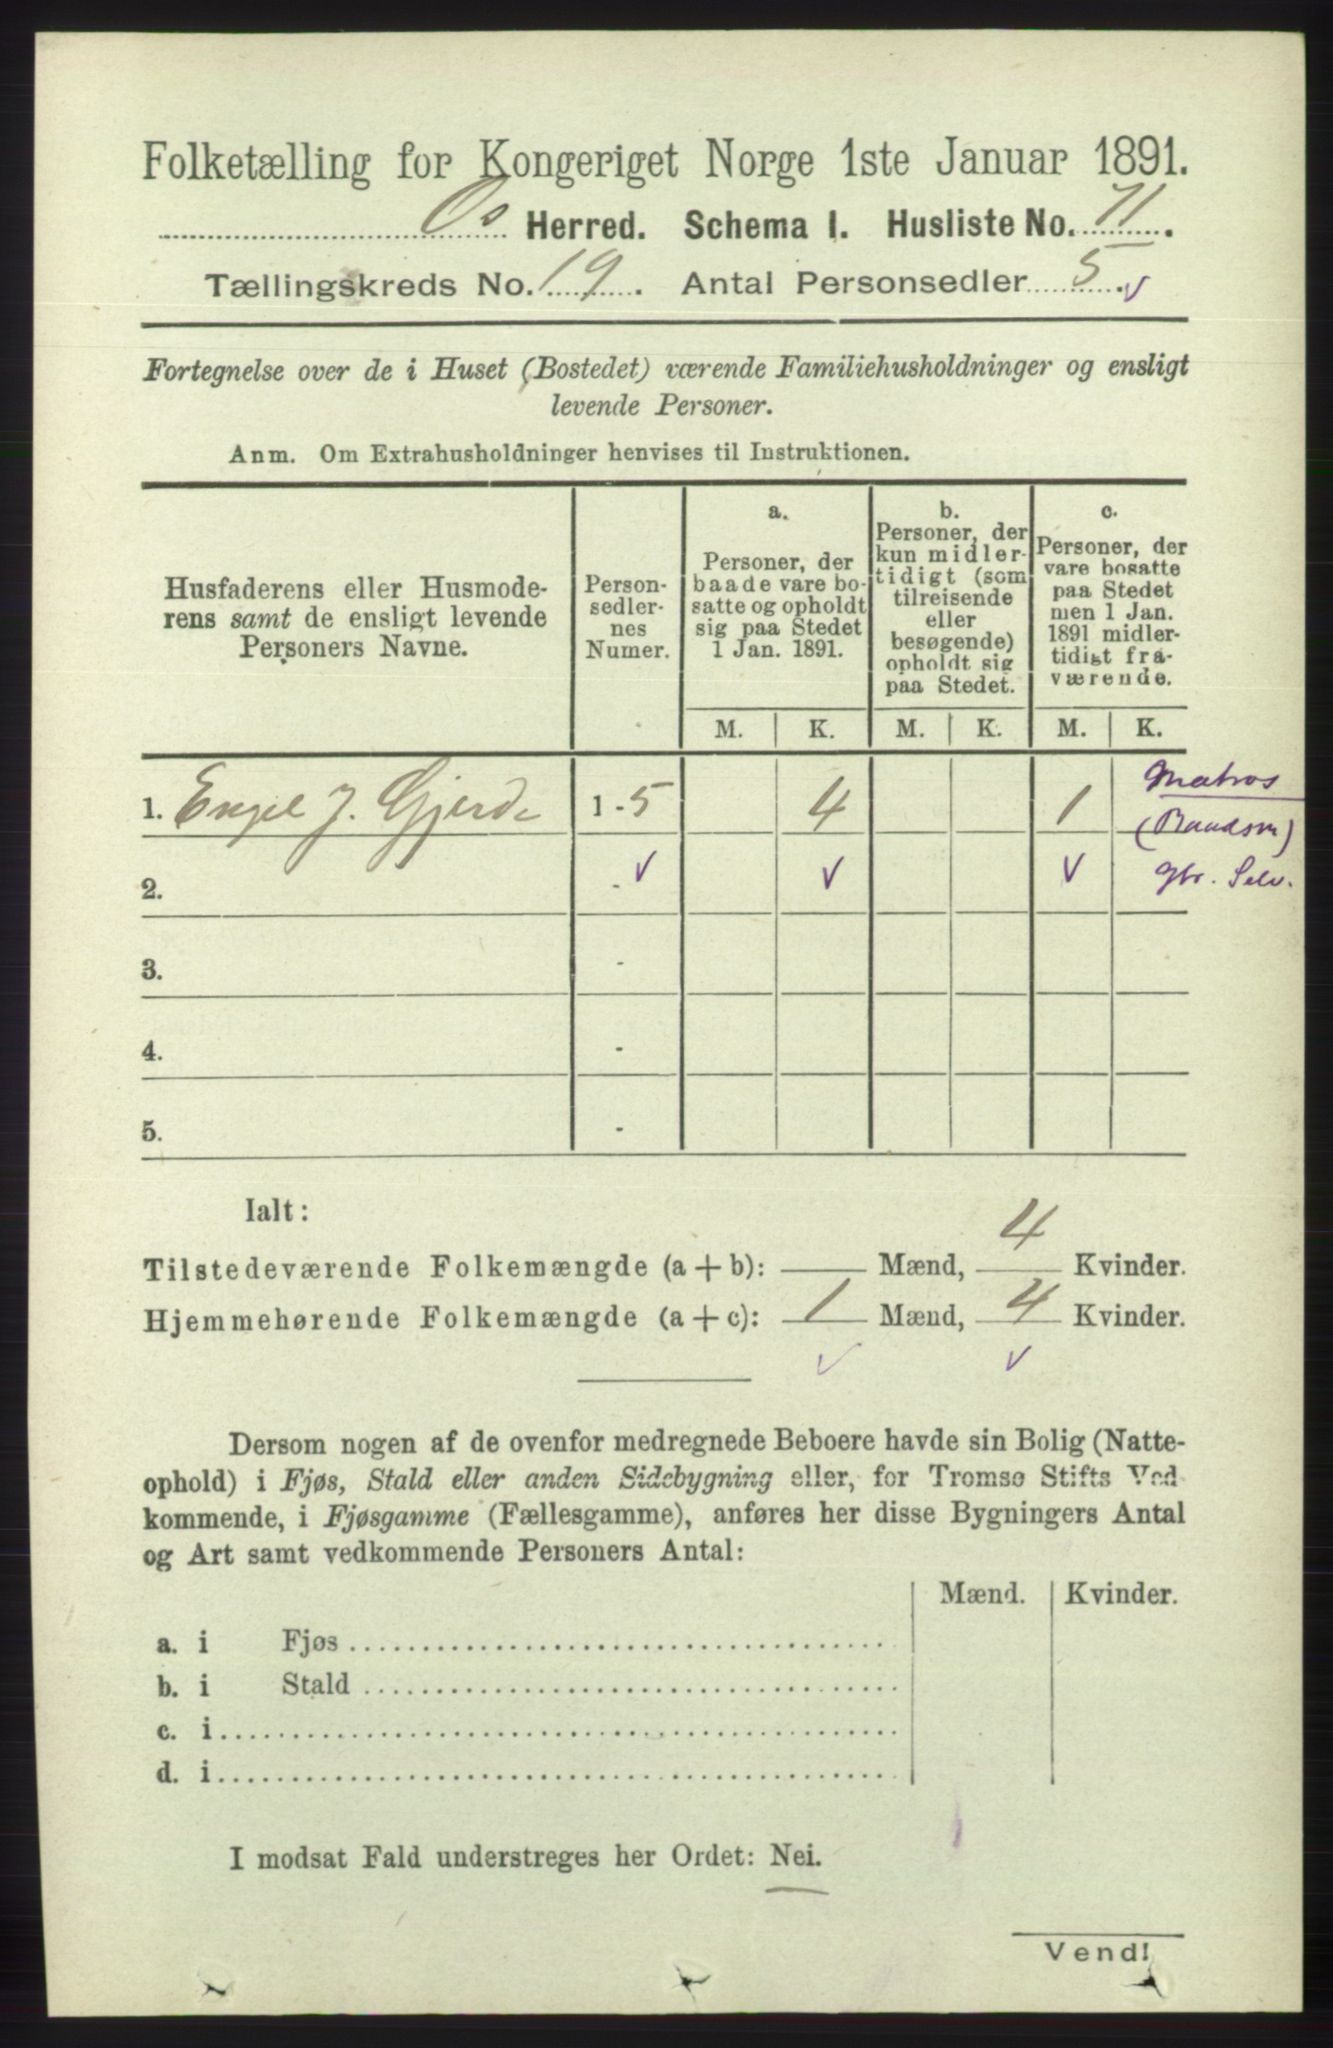 Folketælling for Kongeriget Norge 1ste Januar 1891.
Os Herred. Schema I. Husliste No. 71.
Tællingskreds No. 19. Antal Personsedler 5. v
Fortegnelse over de i Huset (Bostedet) værende Familiehusholdninger og ensligt
levende Personer.
Anm. Om Extrahusholdninger henvises til Instruktionen.
Husfaderens eller Husmode-
rens samt de ensligt levende
Personers Navne.
Person-
sedler-
nes
Numer.
a.
Personer, der
baade vare bo-
satte og opholdt
sig paa Stedet
1 Jan. 1891.
b.
Personer, der
kun midler-
tidigt (som
tilreisende
eller
besøgende)
opholdt sig
paa Stedet.
c.
Personer, der
vare bosatte
paa Stedet
men 1 Jan.
1891 midler-
tidigt fra-
værende.
M. K. M. K. M. K.
1. Engel J. Gjerde 1 - 5 4 1 Matros
(Baadsm)
2. - v v v Gbr. Selv.
3. -
4. -
5. -
Ialt:
Tilstedeværende Folkemængde (a + b): Mænd, 4 Kvinder.
Hjemmehørende Folkemængde (a + c): 1 Mænd, 4 Kvinder.
v v
Dersom nogen af de ovenfor medregnede Beboere havde sin Bolig (Natte-
ophold) i Fjøs, Stald eller anden Sidebygning eller, for Tromsø Stifts Ved
kommende, i Fjøsgamme (Fællesgamme), anføres her disse Bygningers Antal
og Art samt vedkommende Personers Antal:
Mænd. Kvinder.
a. i Fjøs
b. i Stald
c. i
d. i
I modsat Fald understreges her Ordet: Nei.
Vend!